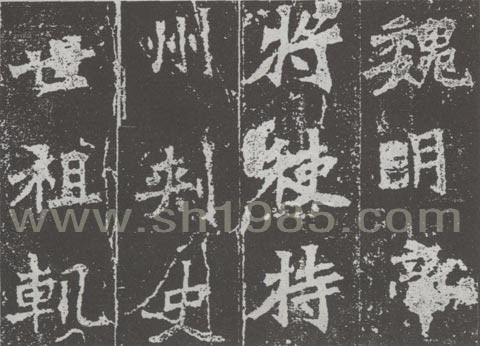 魏明
将特
州刺史
世祖軌
www.sh1985.com